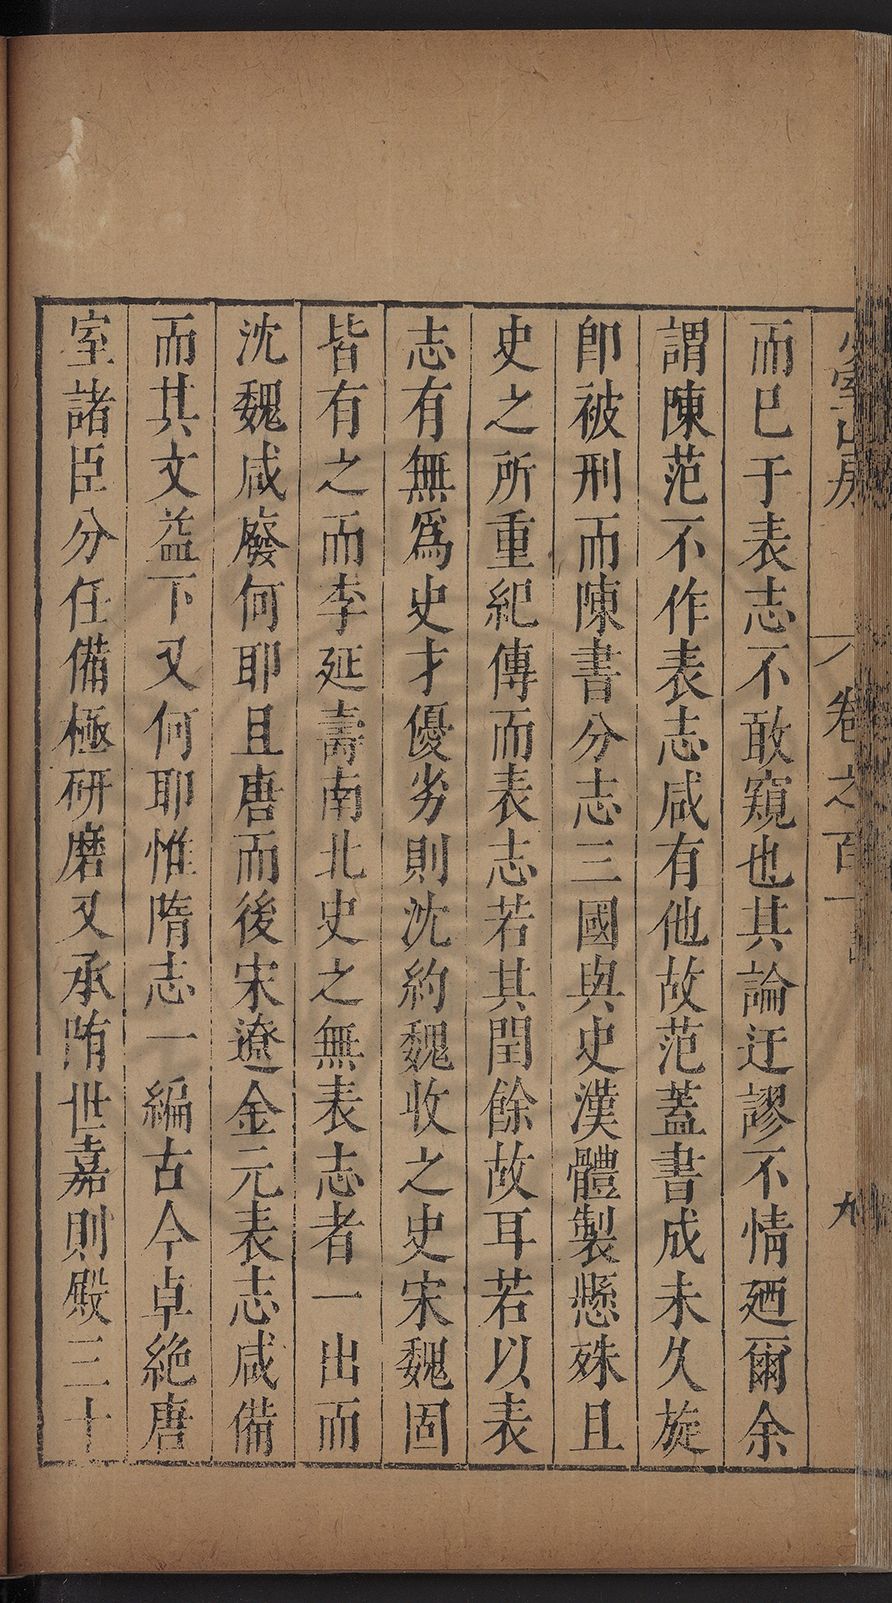 少室山房 卷之百一 九
而已于表志不敢窺也其論迂謬不情廼爾余
謂陳范不作表志咸有他故范蓋書成未久旋
卽被刑而陳書分志三國與史漢體製懸殊且
史之所重紀傳而表志若其閏餘故耳若以表
志有無爲史才優劣則沈約魏收之史宋魏固
皆有之而李延壽南北史之無表志者一出而
沈魏咸廢何耶且唐而後宋遼金元表志咸備
而其文益下又何耶惟隋志一編古今卓絶唐
室諸臣分任備極研磨又承隋世嘉則殿三十